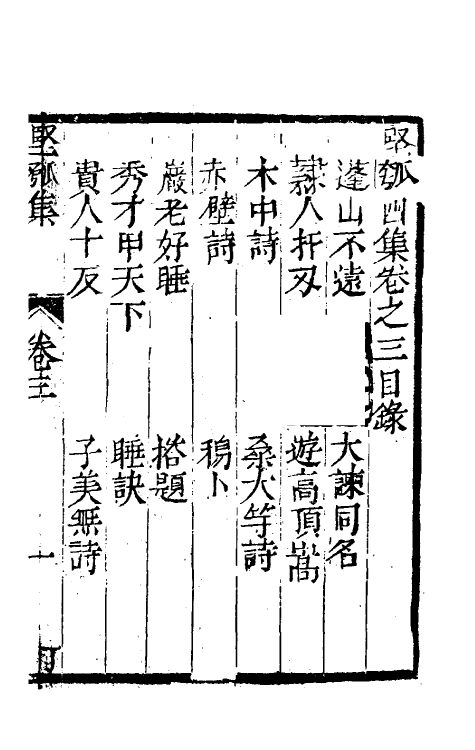 堅瓠四集卷之三目錄
蓬山不遠 大諫同名
隸人扞刃 遊高頂嵩
木中詩 桑大等詩
赤壁詩 鵶卜
嚴老好睡 搭題
秀才甲天下 睡訣
貴人十反 子美無詩
堅瓠集 卷三 一